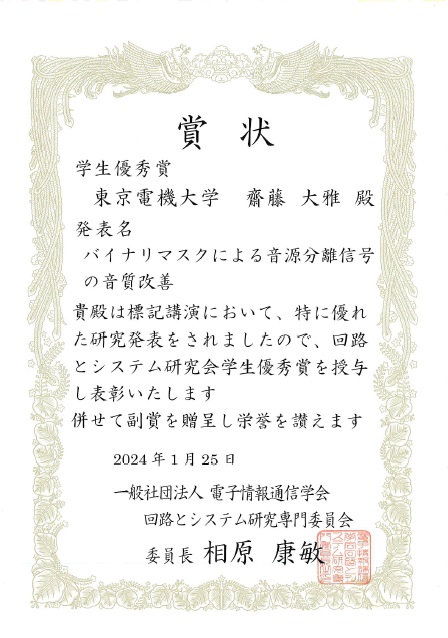 賞状
学生優秀賞
東京電機大学 齋藤 大雅 殿
発表名
バイナリマスクによる音源分離信号
の音質改善
貴殿は標記講演において、特に優れ
た研究発表をされましたので、回路
とシステム研究会学生優秀賞を授与
し表彰いたします
併せて副賞を贈呈し栄誉を讃えます
2024年1月25日
一般社団法人 電子情報通信学会
回路とシステム研究専門委員会
委員長 相原 康敏